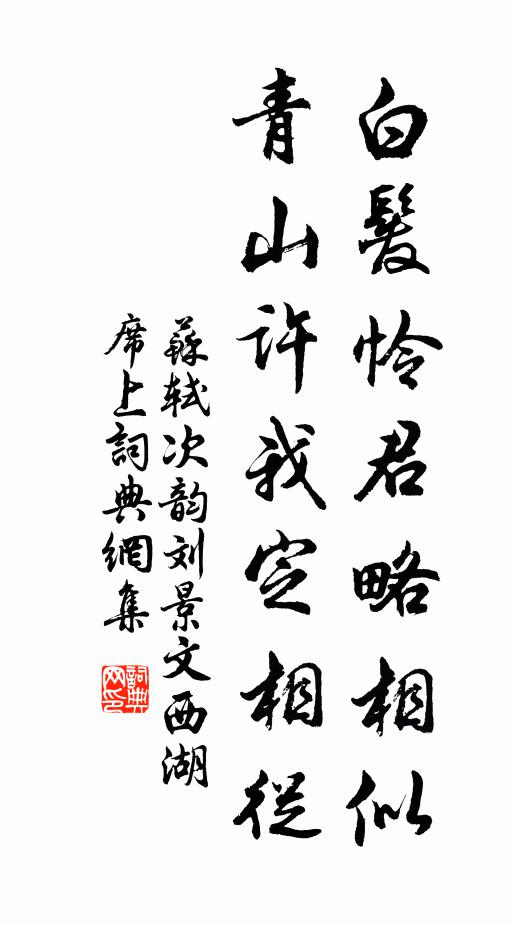 白髮怜君略相似
青山许我定相從
蘇轼次韵刘景文西湖
席上詞典網集
詞典
网印